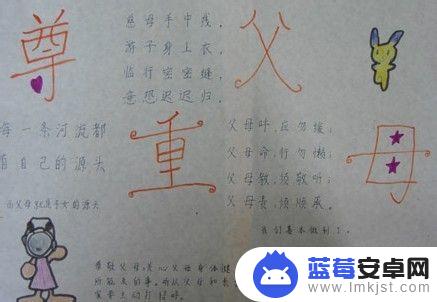 尊
慈母手中线,
游子身上衣,
临行密密缝,
意恐迟迟归.
父
每一条河流都
有自己的源头
而父母就是子女的源头
重
父母呼,应勿缓;
父母命,行勿懒;
父母教,须敬听;
父母责,须顺承。
我们基本做到了.
母
尊敬父母,关心父母身体健
蓝莓安卓网
www.lmkjst.com